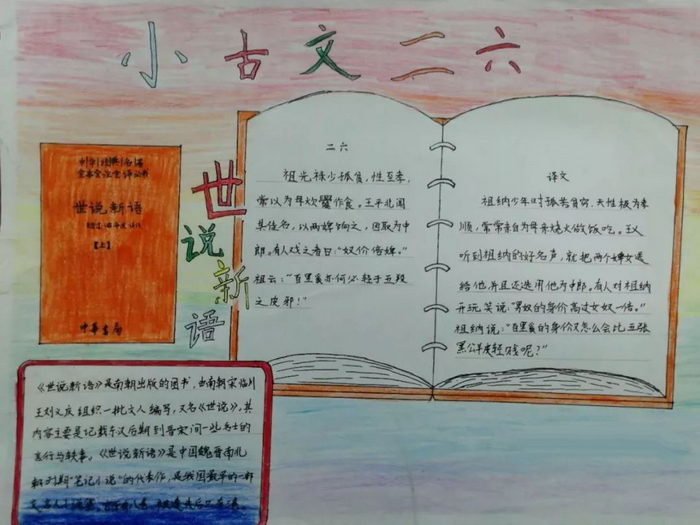 小古文二六
中华经典名著
全本全注全译丛书
世说新语
【上】
中華書局
世说新语
二六
祖光禄少孤贫，性至孝，
常以为母炊爨作食。王平北闻
其佳名，以两婢饷之，因取为中
郎。有人戏之者曰："奴价倍婢。"
祖云："百里奚亦何必轻于五羖
之皮邪！"
译文
祖纳少年时孤苦贫穷，天性极为孝
顺，常常亲自为母亲烧火做饭吃。王乂
听到祖纳的好名声，就把两个婢女送
给他并且还选用他为中郎。有人对祖纳
开玩笑说："男奴的身价高过女奴一倍。"
祖纳说："百里奚的身价又怎么会比五张
黑公羊皮轻贱呢？"
《世说新语》是南朝出版的图书，由南朝宋临川
王刘义庆组织一批文人编写，又名《世说》。其
内容主要是记载东汉后期到晋宋间一些名士的
言行与轶事。《世说新语》是中国魏晋南北
朝时期"笔记小说"的代表作，是我国最早的一部
文言志人小说集。